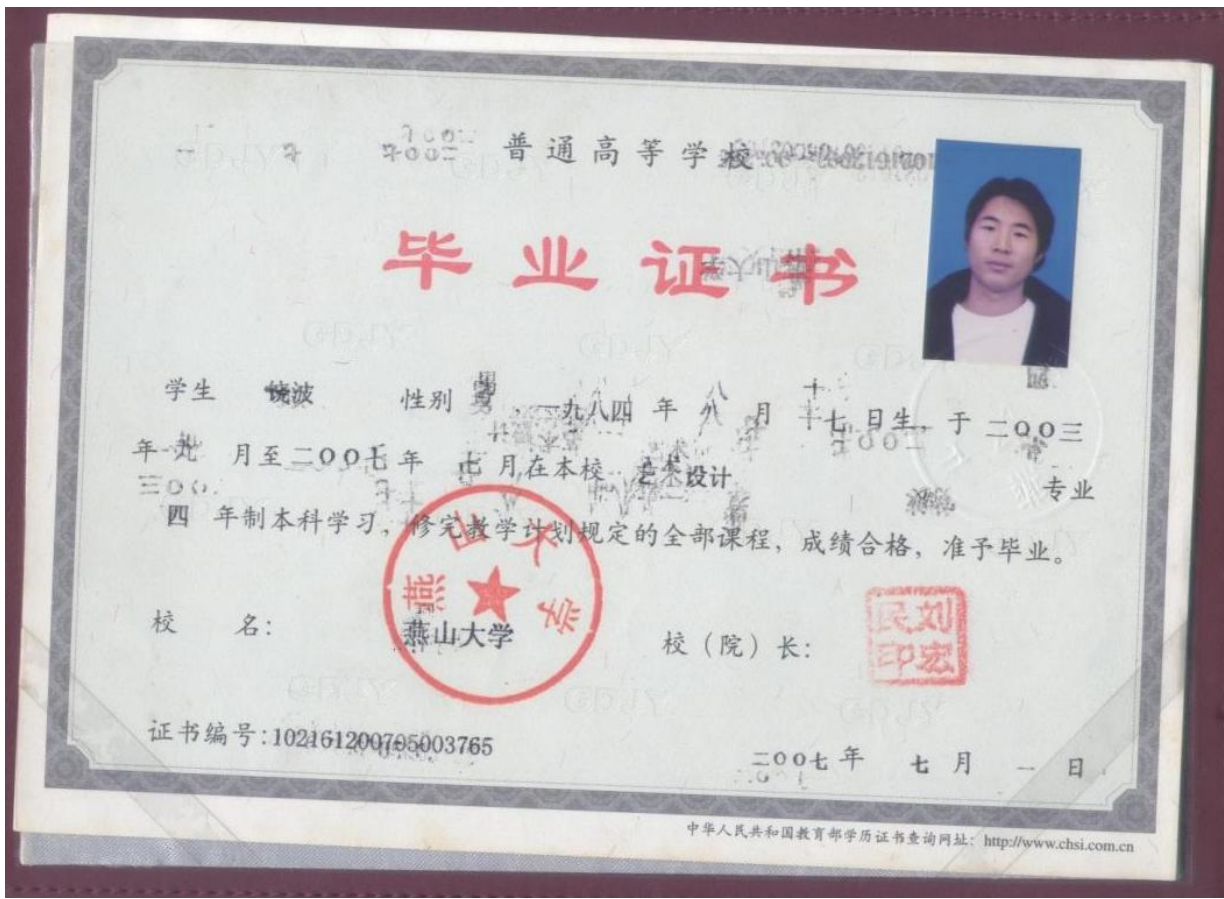 普通高等学校
毕业证书
学生 饶波 性别 男 一九八四 年 八 月 十七 日生，于 二〇〇三
年 九 月至 二〇〇七 年 七 月在本校 艺术设计 专业
四 年制本科学习，修完教学计划规定的全部课程，成绩合格，准予毕业。
校 名： 燕山大学 校（院）长： 刘宏民印
燕山大学
证书编号：102161200705003765
二〇〇七 年 七 月 一 日
中华人民共和国教育部学历证书查询网址：http://www.chsi.com.cn